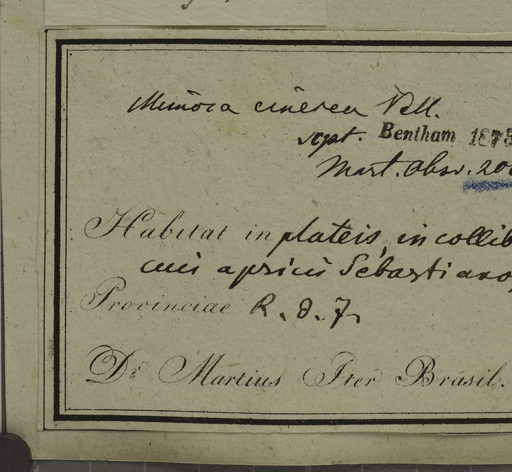 Mimosa cinerea Vell.
script. Bentham 1875
Mart. Obsv. 200
Habitat in plateis, in collib
apricis Sebastiano
Provinciae R. d. J.
Dr. Martius Iter Brasil.